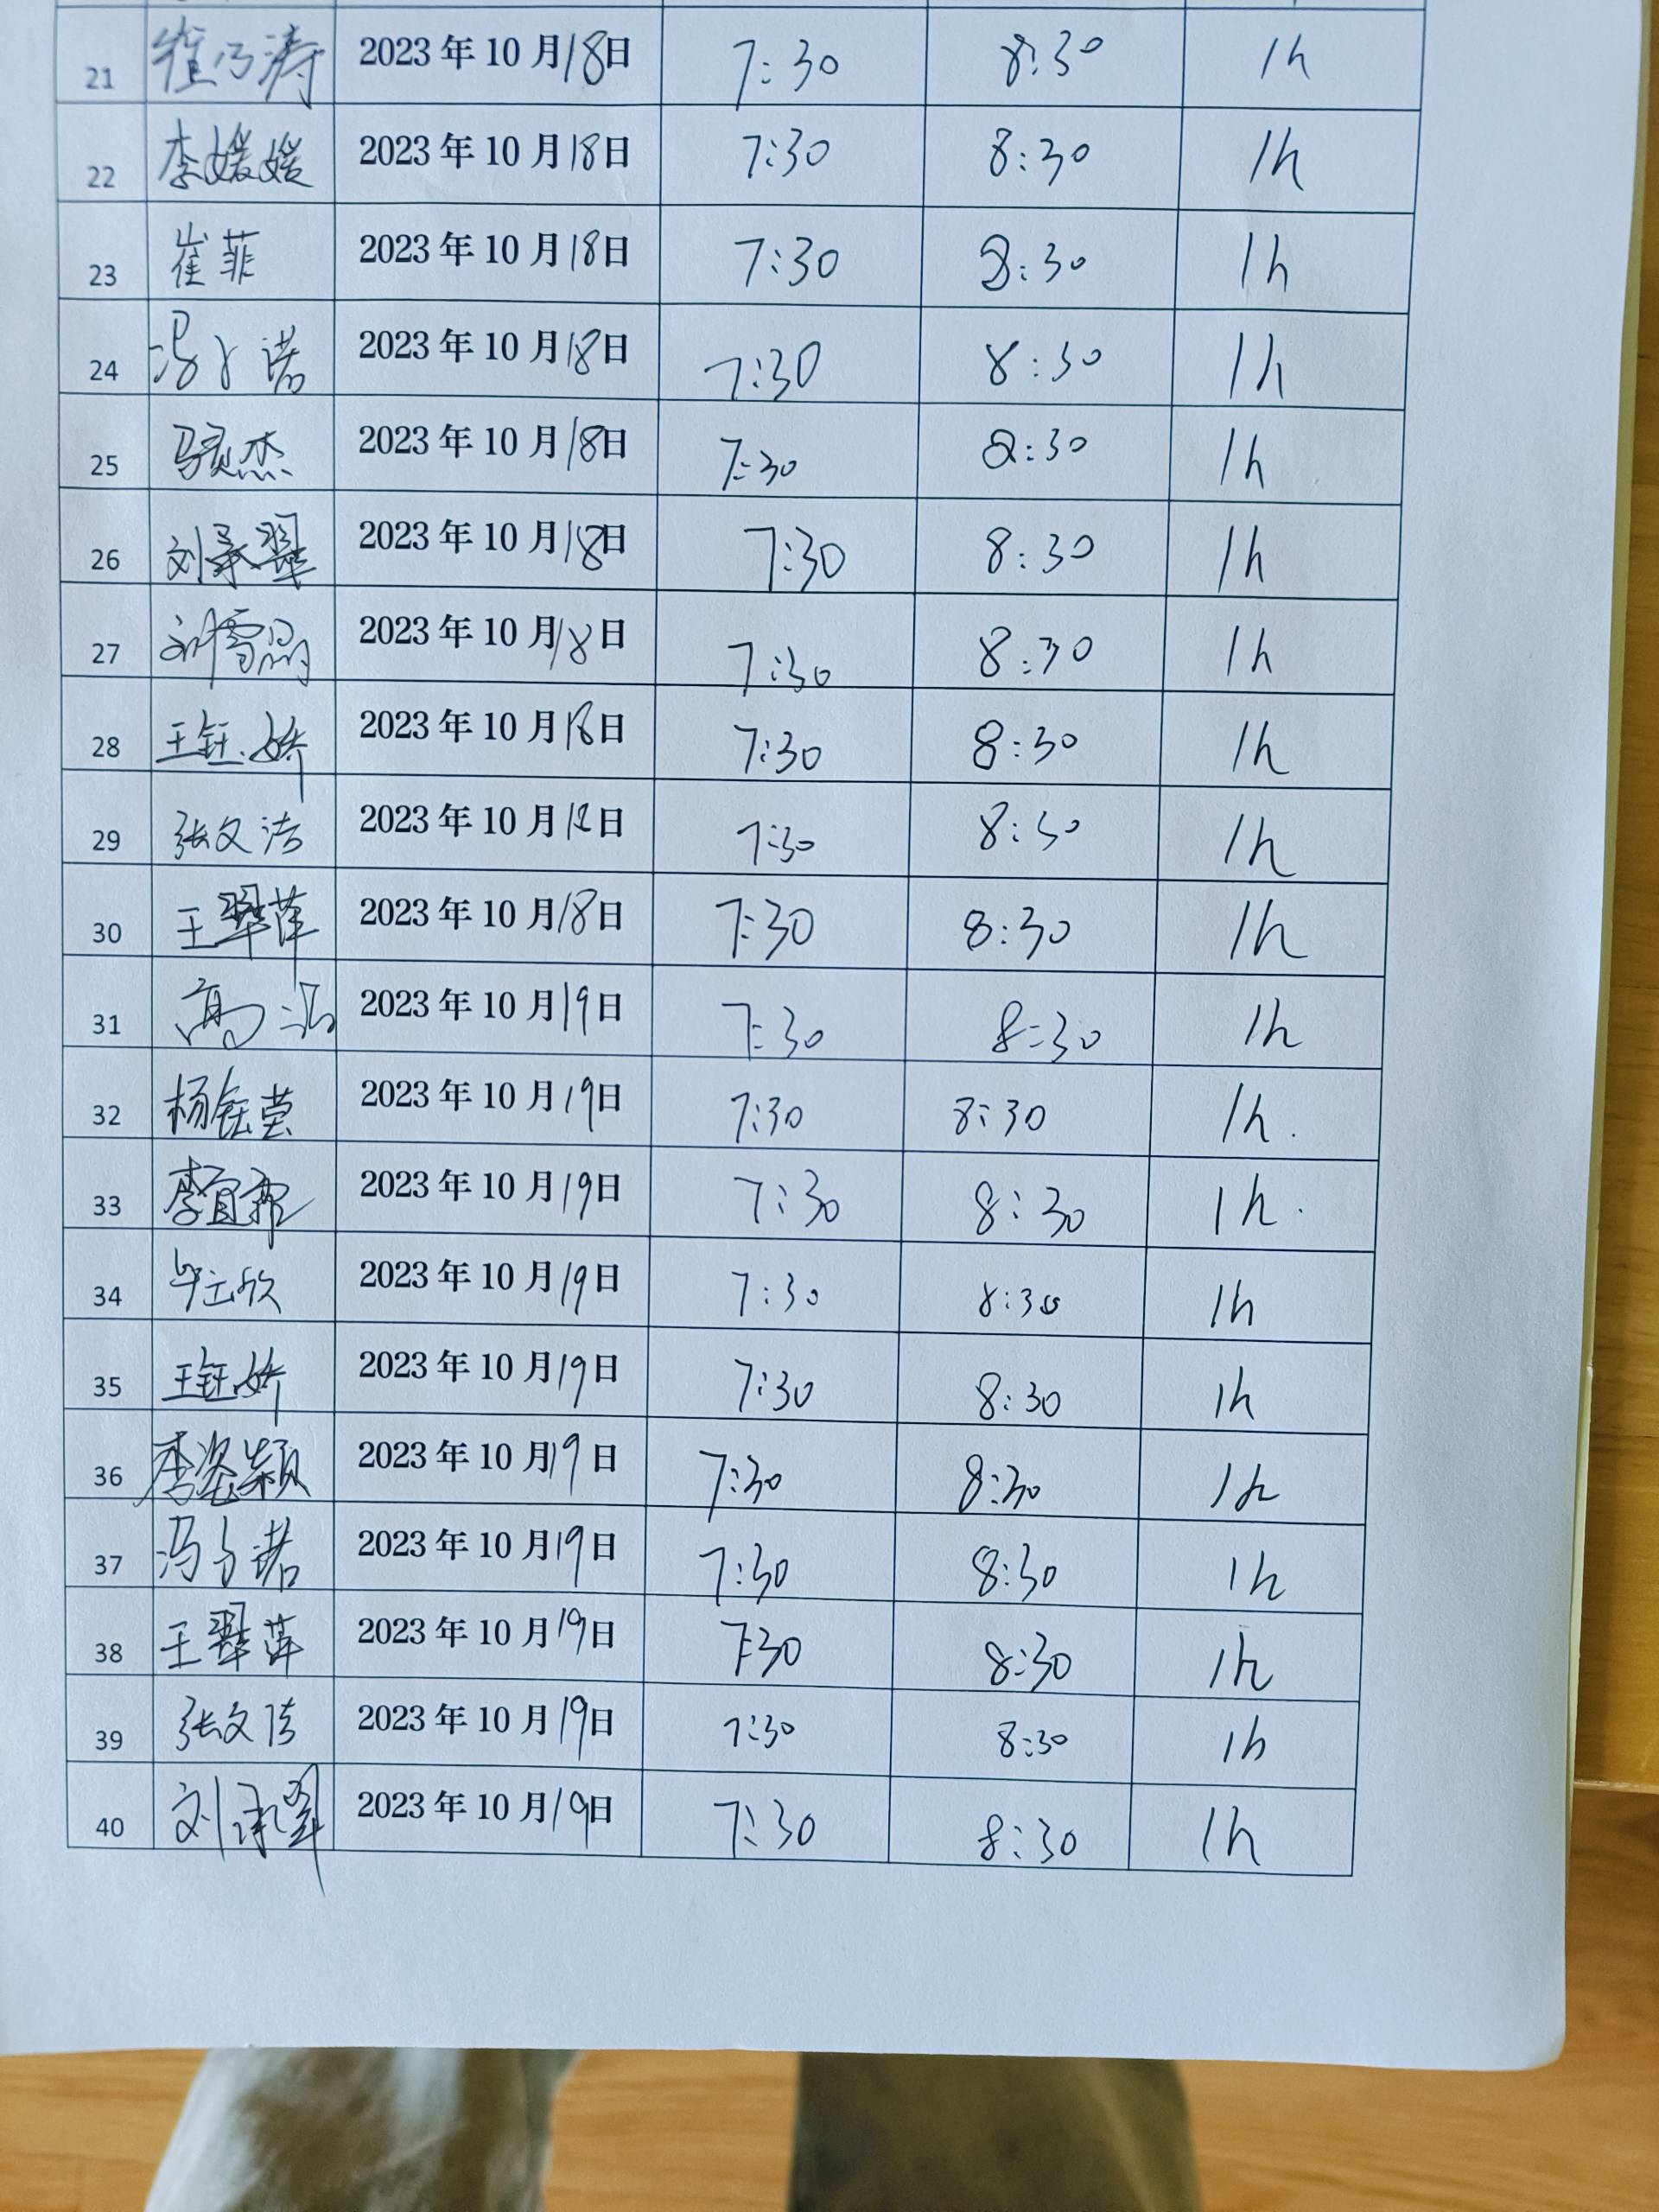 21 崔乃涛 2023年10月18日 7:30 8:30 1h
22 李媛媛 2023年10月18日 7:30 8:30 1h
23 崔菲 2023年10月18日 7:30 8:30 1h
24 冯子诺 2023年10月18日 7:30 8:30 1h
25 马灵杰 2023年10月18日 7:30 8:30 1h
26 刘承翠 2023年10月18日 7:30 8:30 1h
27 刘雪 2023年10月18日 7:30 8:30 1h
28 王钰娇 2023年10月18日 7:30 8:30 1h
29 张文洁 2023年10月18日 7:30 8:30 1h
30 王翠萍 2023年10月18日 7:30 8:30 1h
31 高 2023年10月19日 7:30 8:30 1h
32 杨钰莹 2023年10月19日 7:30 8:30 1h.
33 李宜 2023年10月19日 7:30 8:30 1h.
34 毕立欣 2023年10月19日 7:30 8:30 1h
35 王钰娇 2023年10月19日 7:30 8:30 1h
36 李姿颖 2023年10月19日 7:30 8:30 1h
37 冯子诺 2023年10月19日 7:30 8:30 1h
38 王翠萍 2023年10月19日 7:30 8:30 1h
39 张文洁 2023年10月19日 7:30 8:30 1h
40 刘承翠 2023年10月19日 7:30 8:30 1h